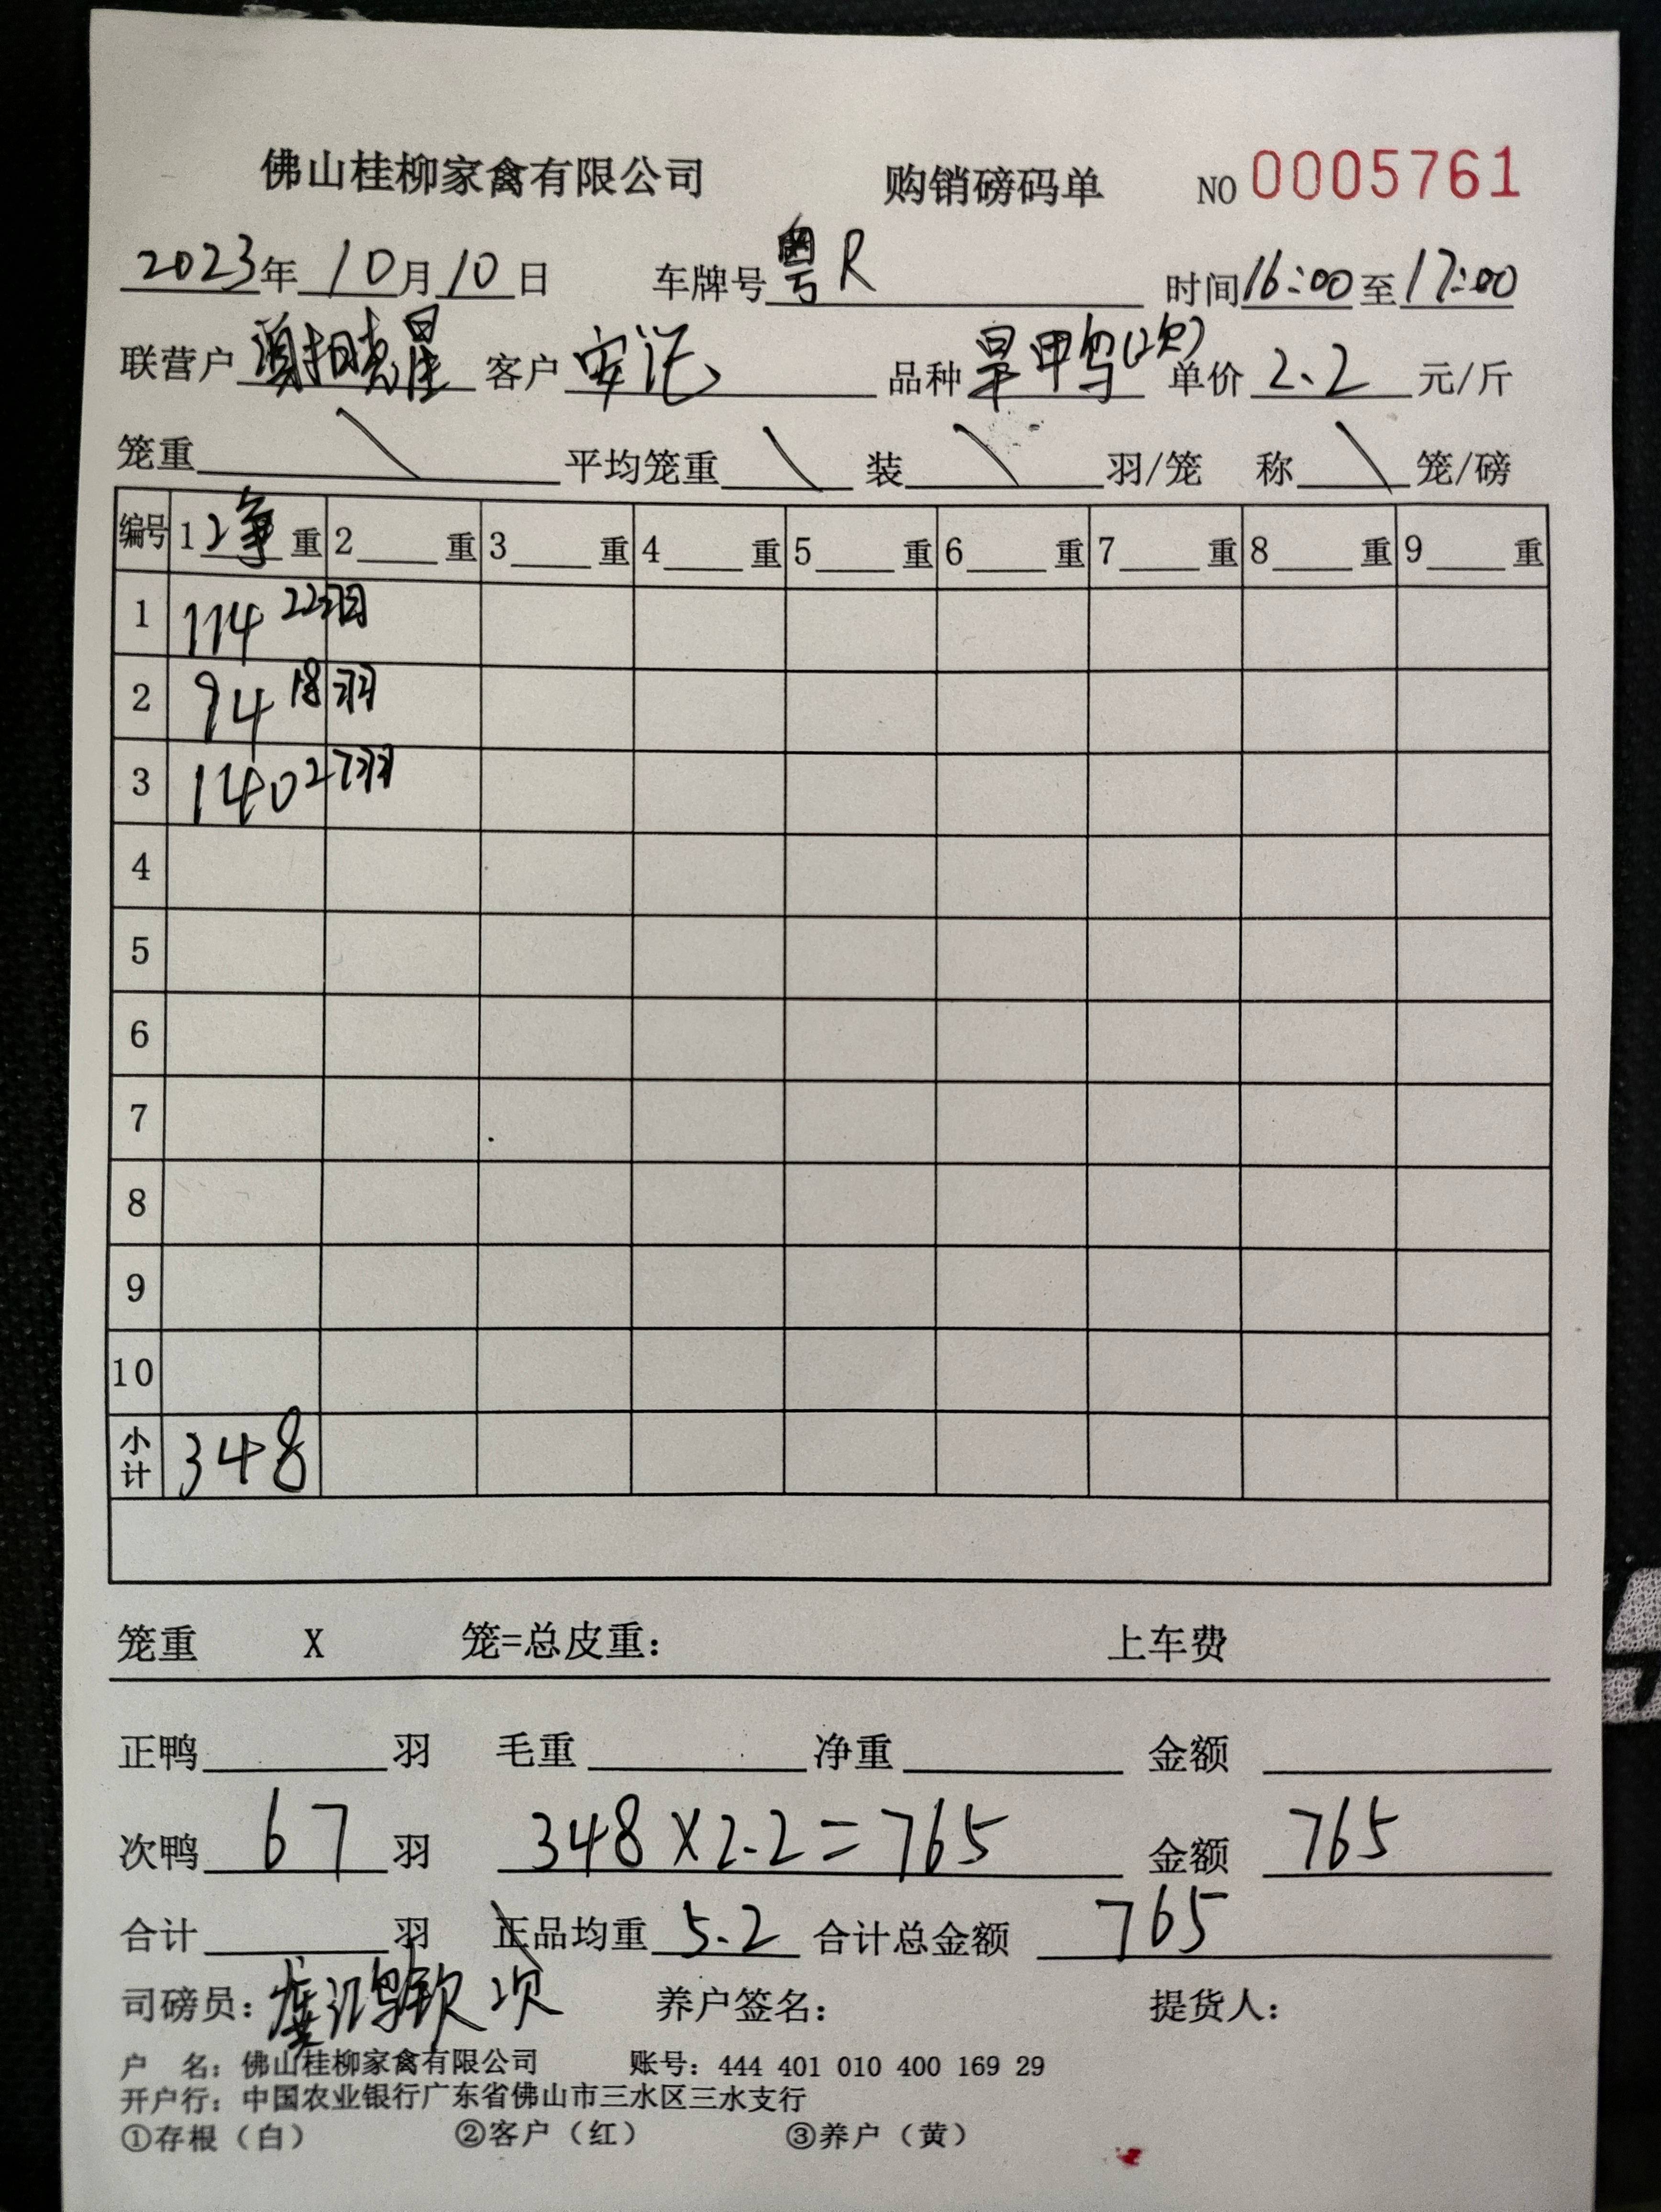 佛山桂柳家禽有限公司 购销磅码单 NO 0005761
2023年10月10日 车牌号 粤R 时间16:00至17:00
联营户 晓星 客户 安记 品种 旱甲鸟(次) 单价 2.2 元/斤
笼重 \ 平均笼重 \ 装 \ 羽/笼 称 \ 笼/磅
编号 1 净 重 2 重 3 重 4 重 5 重 6 重 7 重 8 重 9 重
1 114 22羽
2 94 18羽
3 140 27羽
4
5
6
7
8
9
10
小计 348
笼重 X 笼=总皮重: 上车费
正鸭 羽 毛重 净重 金额
次鸭 67 羽 348×2.2=765 金额 765
合计 羽 正品均重 5.2 合计总金额 765
司磅员: 次 养户签名: 提货人:
户 名: 佛山桂柳家禽有限公司 账号: 444 401 010 400 169 29
开户行: 中国农业银行广东省佛山市三水区三水支行
①存根(白) ②客户(红) ③养户(黄)